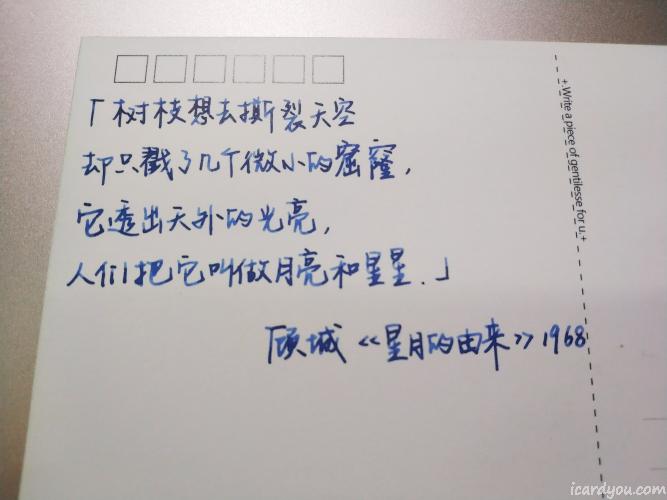 「树枝想去撕裂天空
却只戳了几个微小的窟窿,
它透出天外的光亮,
人们把它叫做月亮和星星.」
顾城《星月的由来》1968
+ Write a piece of gentilesse for u. +
icardyou.com